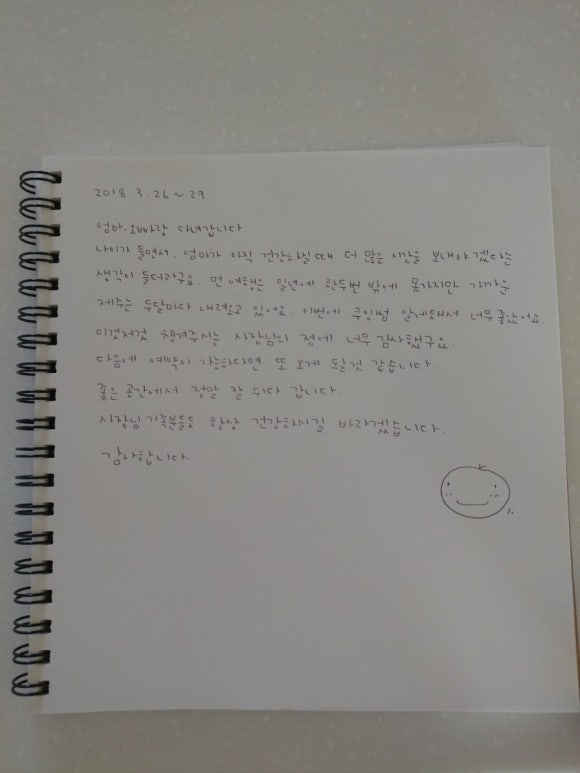 2018. 3. 26 ~ 29
엄마. 오빠랑 다녀갑니다.
나이가 들면서, 엄마가 아직 건강하실때 더 많은 시간을 보내야 겠다는
생각이 들더라구요. 먼 여행은 일년에 한두번 밖에 못가지만 가까운
제주는 두달마다 내려오고 있어요. 이번에 알게되서 너무 좋았어요
이것저것 챙겨주시는 사장님의 정에 너무 감사했구요.
다음에 예약이 가능하다면 또 오게 될것 같습니다
좋은 공간에서 정말 잘 쉬다 갑니다.
사장님 가족분들도 항상 건강하시길 바라겠습니다.
감사합니다.